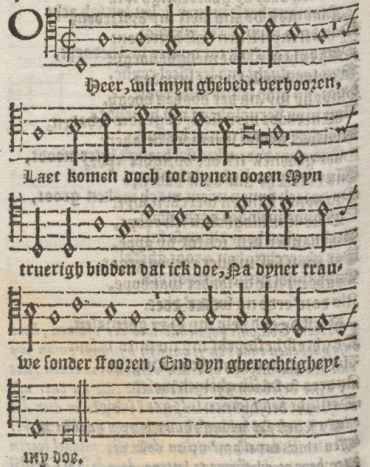 O
Heer, wil myn ghebedt verhooren,
Laet komen doch tot dynen ooren Myn
truerigh bidden dat ick doe, Na dyner trau-
we sonder stooren, End dyn gherechtigheyt
my doe.